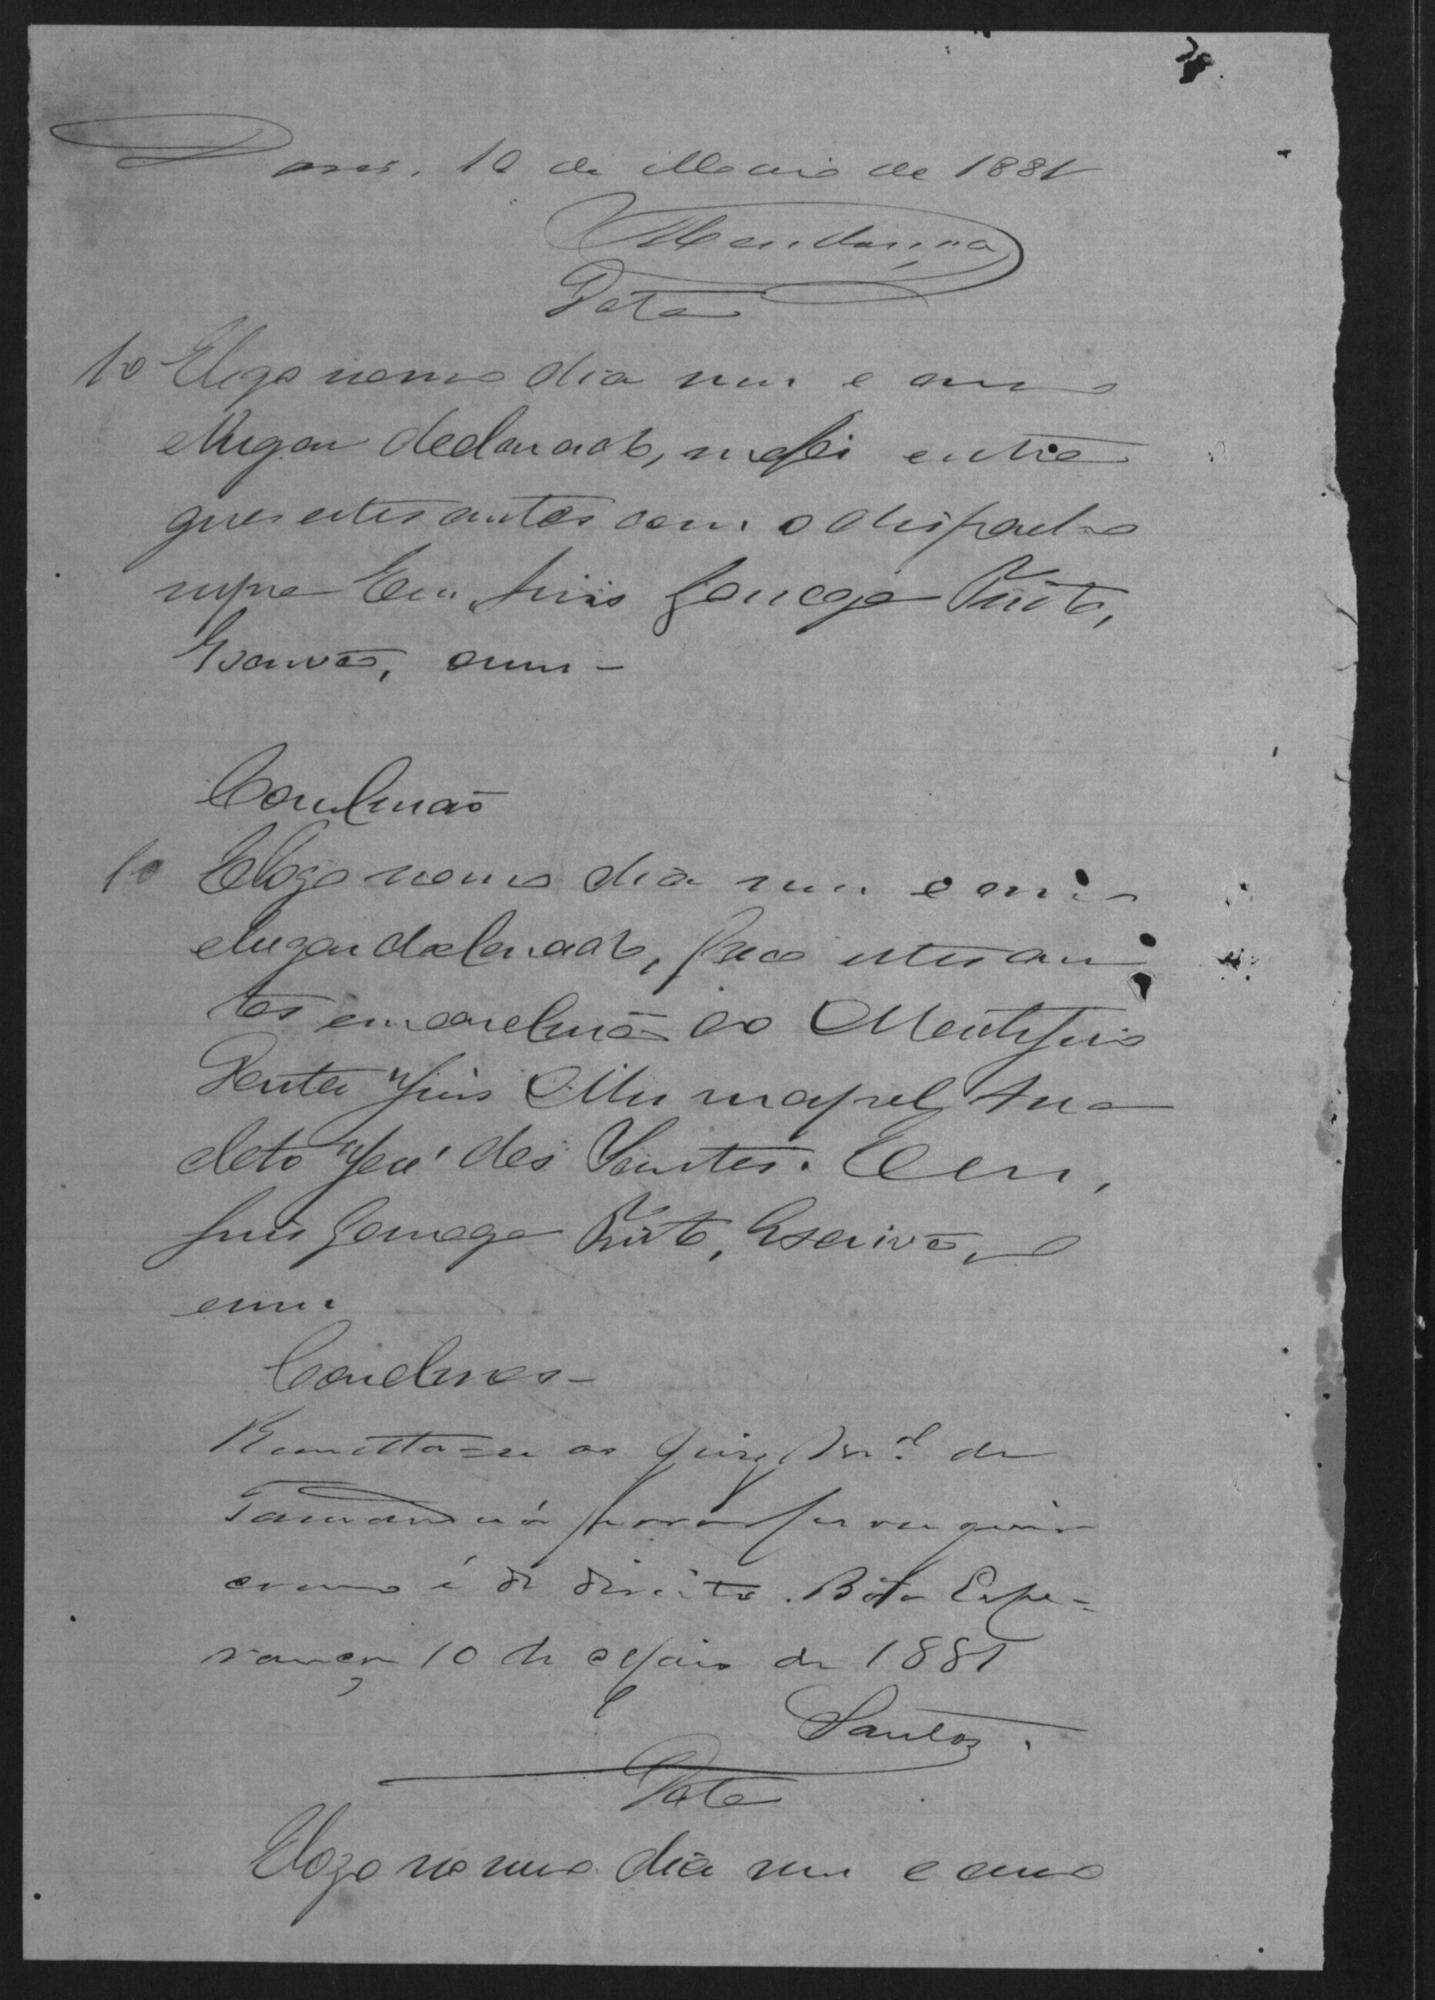 Dores, 10 de Maio de 1881
Mendonça
Data
10 Elogo nomesmo dia mes e anno
elugar declarado, mefoi entre
gues estes autos com o despacho
supra Eu Luis Gonzaga Pinto,
Escrivão, escrevi –
Conclusão
10 Elogo nomesmo dia mes e anno
elugar declarado, faço estes au
tos em conclusão ao Meritissimo
Juis Municipal, Ana
cleto José dos Santos. Eu,
Luis Gonzaga Pinto, Escrivão, o
escrevi
Conclusos –
Remetta-se ao Juizo Mun.al de
Tamanduá para
como é de direito. Bôa Espe-
rança, 10 de Maio de 1881
Santos.
Data
Elogo no mesmo dia mes e anno